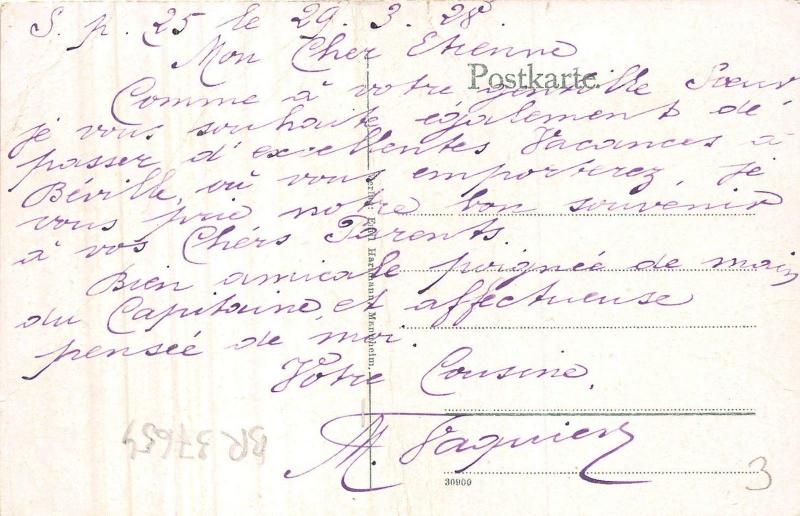 S. p. 25 le 29. 3. 28.
Mon Cher Etienne
Postkarte.
Comme à votre gentille Sœur
je vous souhaite également de
passer d'excellentes Vacances à
Béville, où vous emporterez, je
vous prie notre bon souvenir
à vos Chers Parents.
Bien amicale poignée de main
du Capitaine, et affectueuse
pensée de moi.
Votre Cousine,
M.
Hartmann, Mannheim.
30900
BR 37654
3